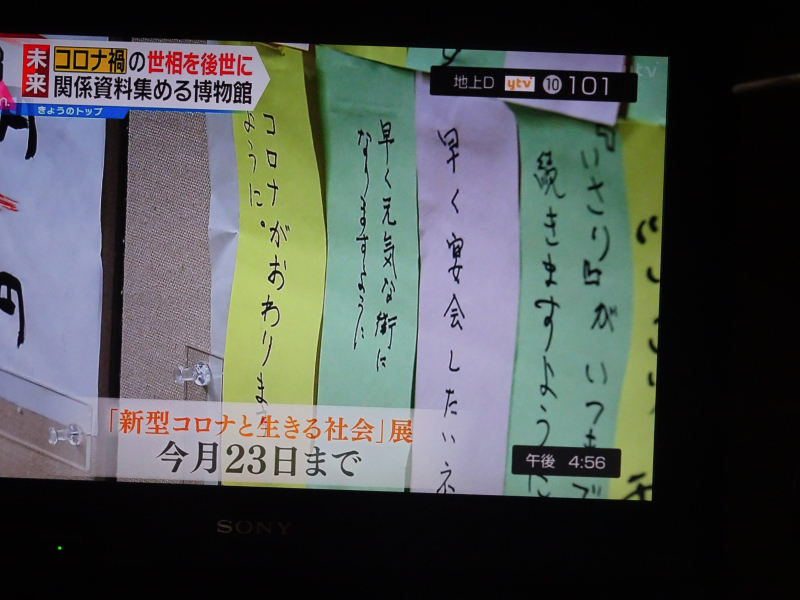 未来
コロナ禍の世相を後世に
関係資料集める博物館
きょうのトップ
地上D ytv 10 101
ytv
続きますように
早く宴会したいネ
早く元気な街に
なりますように
コロナがおわりま
ように。
円
「新型コロナと生きる社会」展
今月23日まで
午後 4:56
SONY